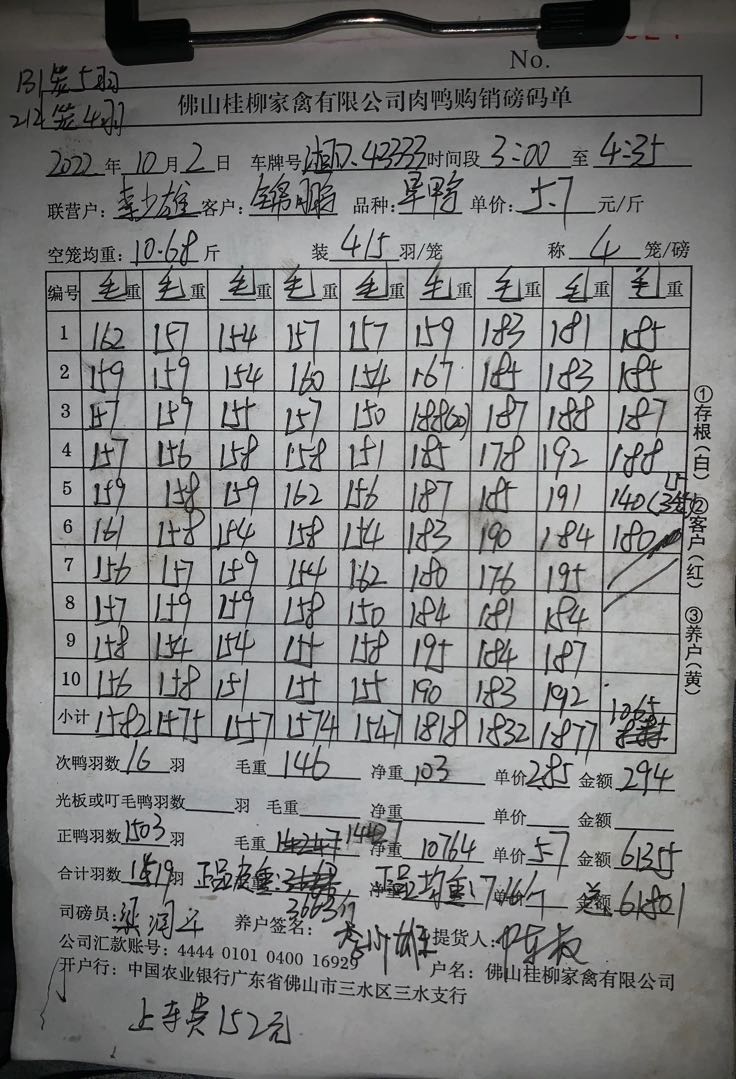 No.
131笼5羽
212笼4羽
佛山桂柳家禽有限公司肉鸭购销磅码单
2022年10月2日 车牌号湘D.43333时间段3:00至4:35
联营户:李少雄 客户:锦鹏 品种: 单价:5.7元/斤
空笼均重:10.68斤 装4/5羽/笼 称4笼/磅
编号 毛重 毛重 毛重 毛重 毛重 毛重 毛重 毛重 毛重
1 162 157 154 157 157 159 183 181 185
2 159 159 154 160 154 167 185 183 185
3 157 159 155 157 150 188(20) 187 188 187
4 157 156 158 158 151 185 178 192 188
5 159 158 159 162 156 187 185 191 140(
6 161 158 154 158 154 183 190 184 180
7 156 157 159 154 162 180 176 195
8 157 159 159 158 150 184 181 184
9 158 154 154 155 158 195 184 187
10 156 158 151 155 155 190 183 192
小计 1582 1575 1557 1574 1547 1818 1832 1877 1065
①存根(白) ②客户(红) ③养户(黄)
次鸭羽数16羽 毛重146 净重103 单价2.85 金额294
光板或叮毛鸭羽数 羽 毛重 净重 单价 金额
正鸭羽数1503羽 毛重14427 净重10764 单价5.7 金额61355
合计羽数1519羽 正品皮重:3663斤 正品均重:7.16斤 单价 金额 61801
司磅员: 养户签名:李少雄 提货人:
公司汇款账号:4444 0101 0400 16929
开户行:中国农业银行广东省佛山市三水区三水支行 户名:佛山桂柳家禽有限公司
上车费152元